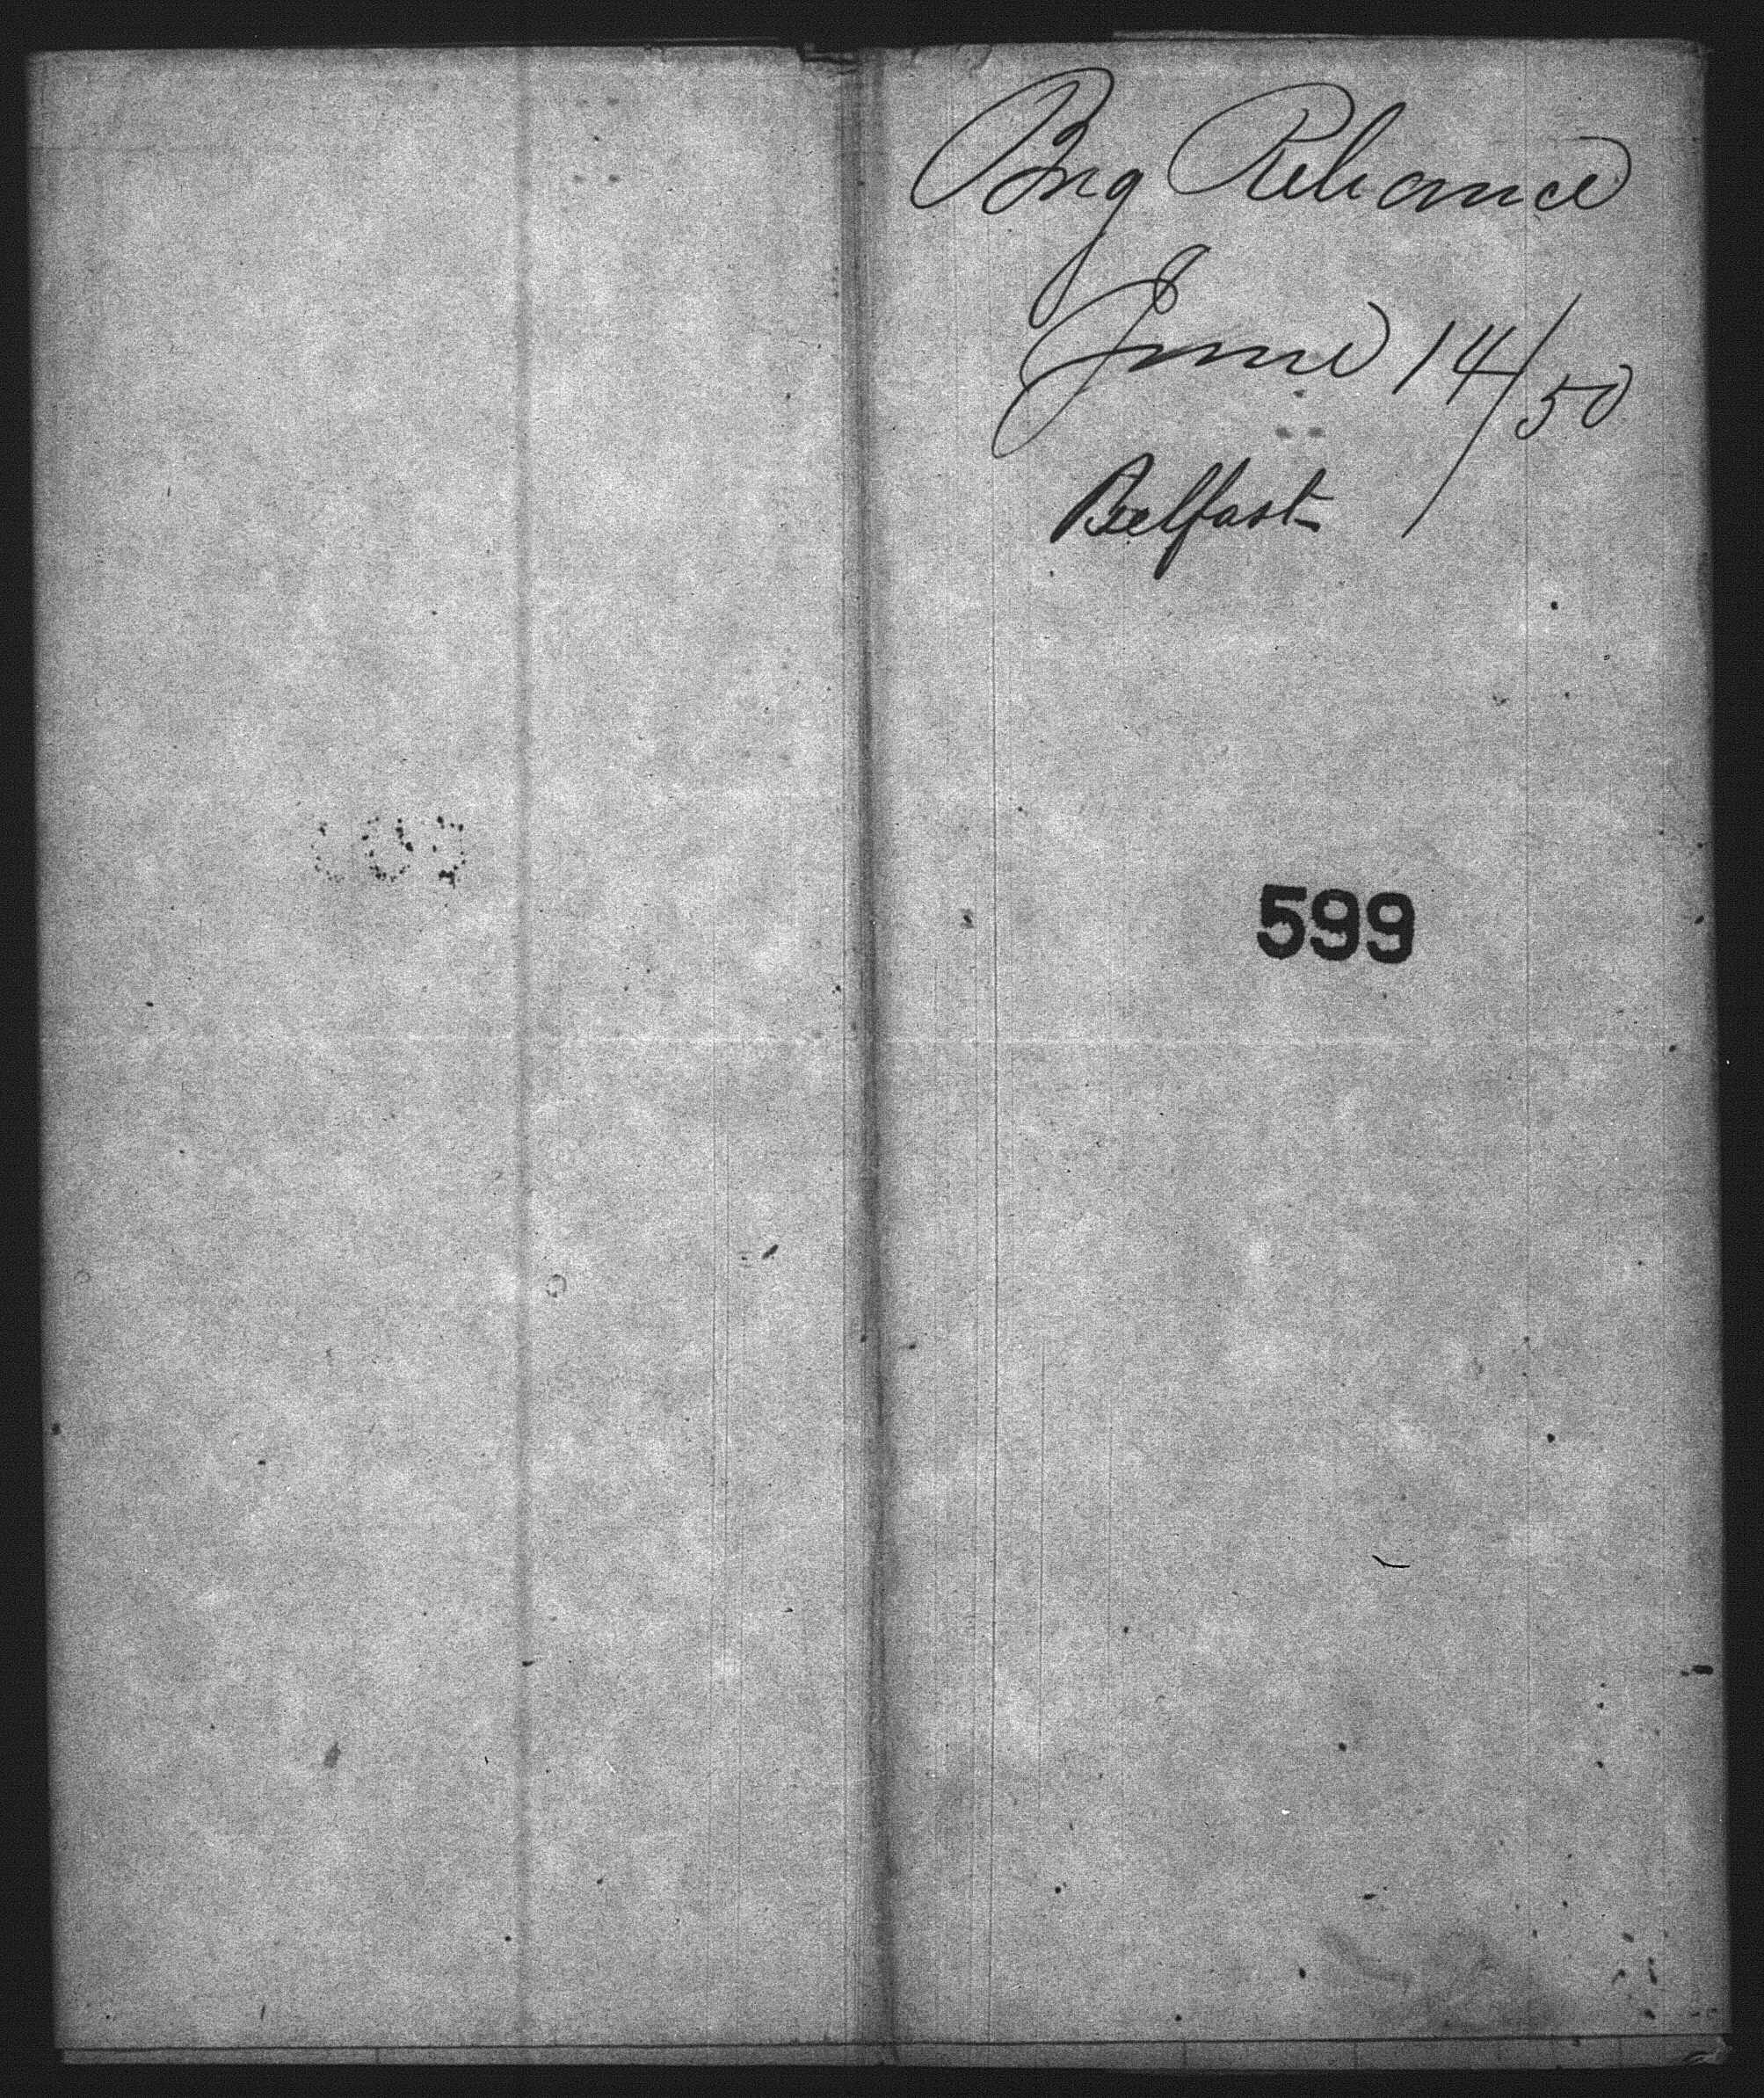 Brig Reliance
June 14/50
Belfast
599